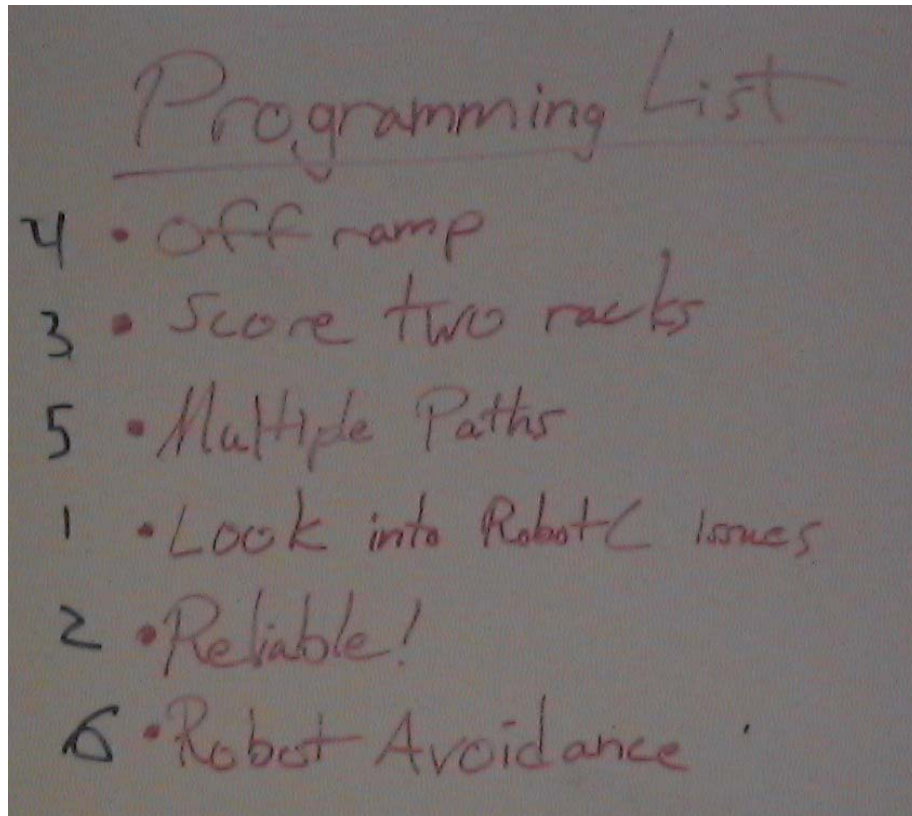 Programming List
4 • Off ramp
3 • Score two racks
5 • Multiple Paths
1 • Look into RobotC issues
2 • Reliable!
6 • Robot Avoidance